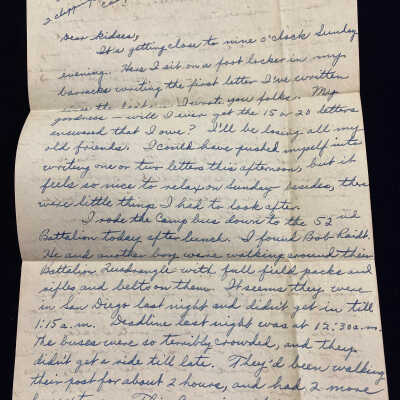 Dear Kidses,
It's getting close to nine o'clock Sunday
evening. Here I sit on a foot locker in my
barracks writing the first letter I've written
since the last one I wrote you folks. My
goodness – will I ever get the 15 or 20 letters
answered that I owe? I'll be losing all my
old friends. I could have pushed myself into
writing one or two letters this afternoon, but it
feels so nice to relax on Sunday besides, there
were little things I had to look after.
I rode the Camp bus down to the 52nd
Battalion today after lunch. I found Bob Raidt.
He and another boy were walking around their
Battalion Quadrangle with full field packs and
rifles and belts on them. It seems they were
in San Diego last night and didn't get in till
1:15 a.m. Deadline last night was at 12:30 a.m.
the buses were so terribly crowded, and they
didn't get a ride till late. They'd been walking
their post for about 2 hours, and had 2 more